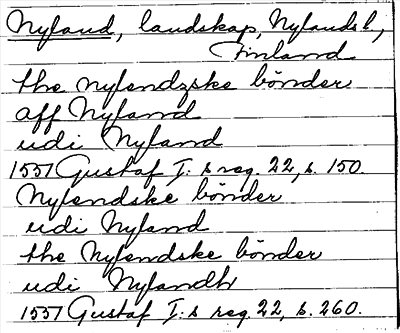 Nyland, landskap, Nylands l,
Finland
the nylendzske bönder
aff Nyland
udi Nyland
1551 Gustaf I:s reg. 22, s. 150.
Nylendske bönder
udi Nyland
the Nylendske bönder
udi Nylandh
1551 Gustaf I:s reg. 22, s. 260.